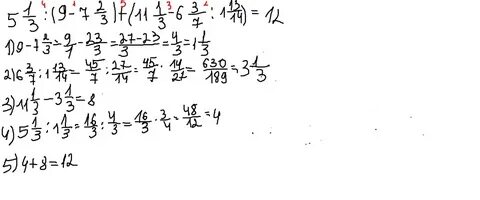 5 1/3 : (9 - 7 2/3) + (11 1/3 - 6 3/7 : 1 13/14) = 12
1) 9 - 7 2/3 = 9/1 - 23/3 = 27-23/3 = 4/3 = 1 1/3
2) 6 3/7 : 1 13/14 = 45/7 : 27/14 = 45/7 · 14/27 = 630/189 = 3 1/3
3) 11 1/3 - 3 1/3 = 8
4) 5 1/3 : 1 1/3 = 16/3 : 4/3 = 16/3 · 3/4 = 48/12 = 4
5) 4 + 8 = 12